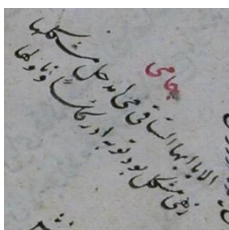 جامی
الا یا ایها الساقی می امد حل مشکلها
ز می مشکل بود توبه ادر کاسا و ناولها